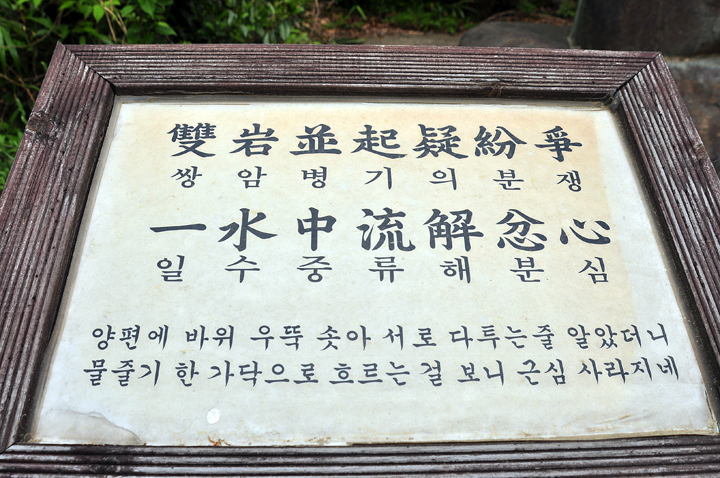 雙岩並起疑紛爭
쌍암병기의분쟁
一水中流解忿心
일수중류해분심
양편에 바위 우뚝 솟아 서로 다투는줄 알았더니
물줄기 한 가닥으로 흐르는 걸 보니 근심 사라지네